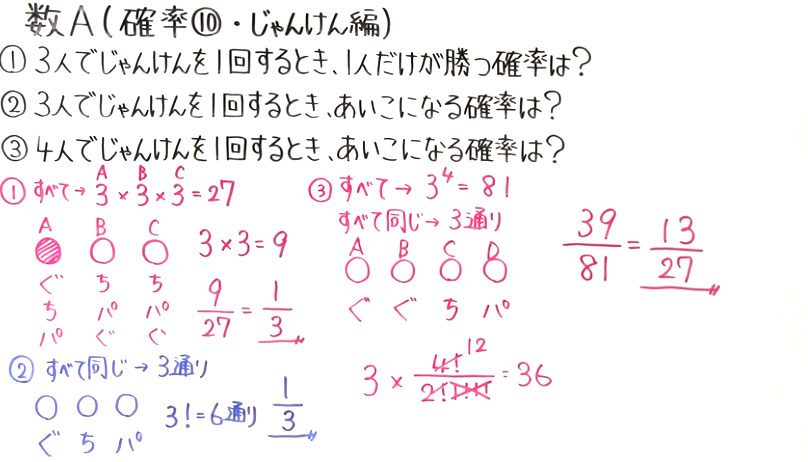 数A(確率⑩・じゃんけん編)
① 3人でじゃんけんを1回するとき、1人だけが勝つ確率は?
② 3人でじゃんけんを1回するとき、あいこになる確率は?
③ 4人でじゃんけんを1回するとき、あいこになる確率は?
A B C
① すべて→ 3 × 3 × 3 = 27
A B C
3×3=9
ぐ ち ち
ち パ パ
パ ぐ ぐ
9/27 = 1/3
② すべて同じ → 3通り
ぐ ち パ
3! = 6通り
1/3
③ すべて → 3^4 = 81
すべて同じ → 3通り
A B C D
ぐ ぐ ち パ
3 × 4!/2!1!1! = 36
12
39/81 = 13/27